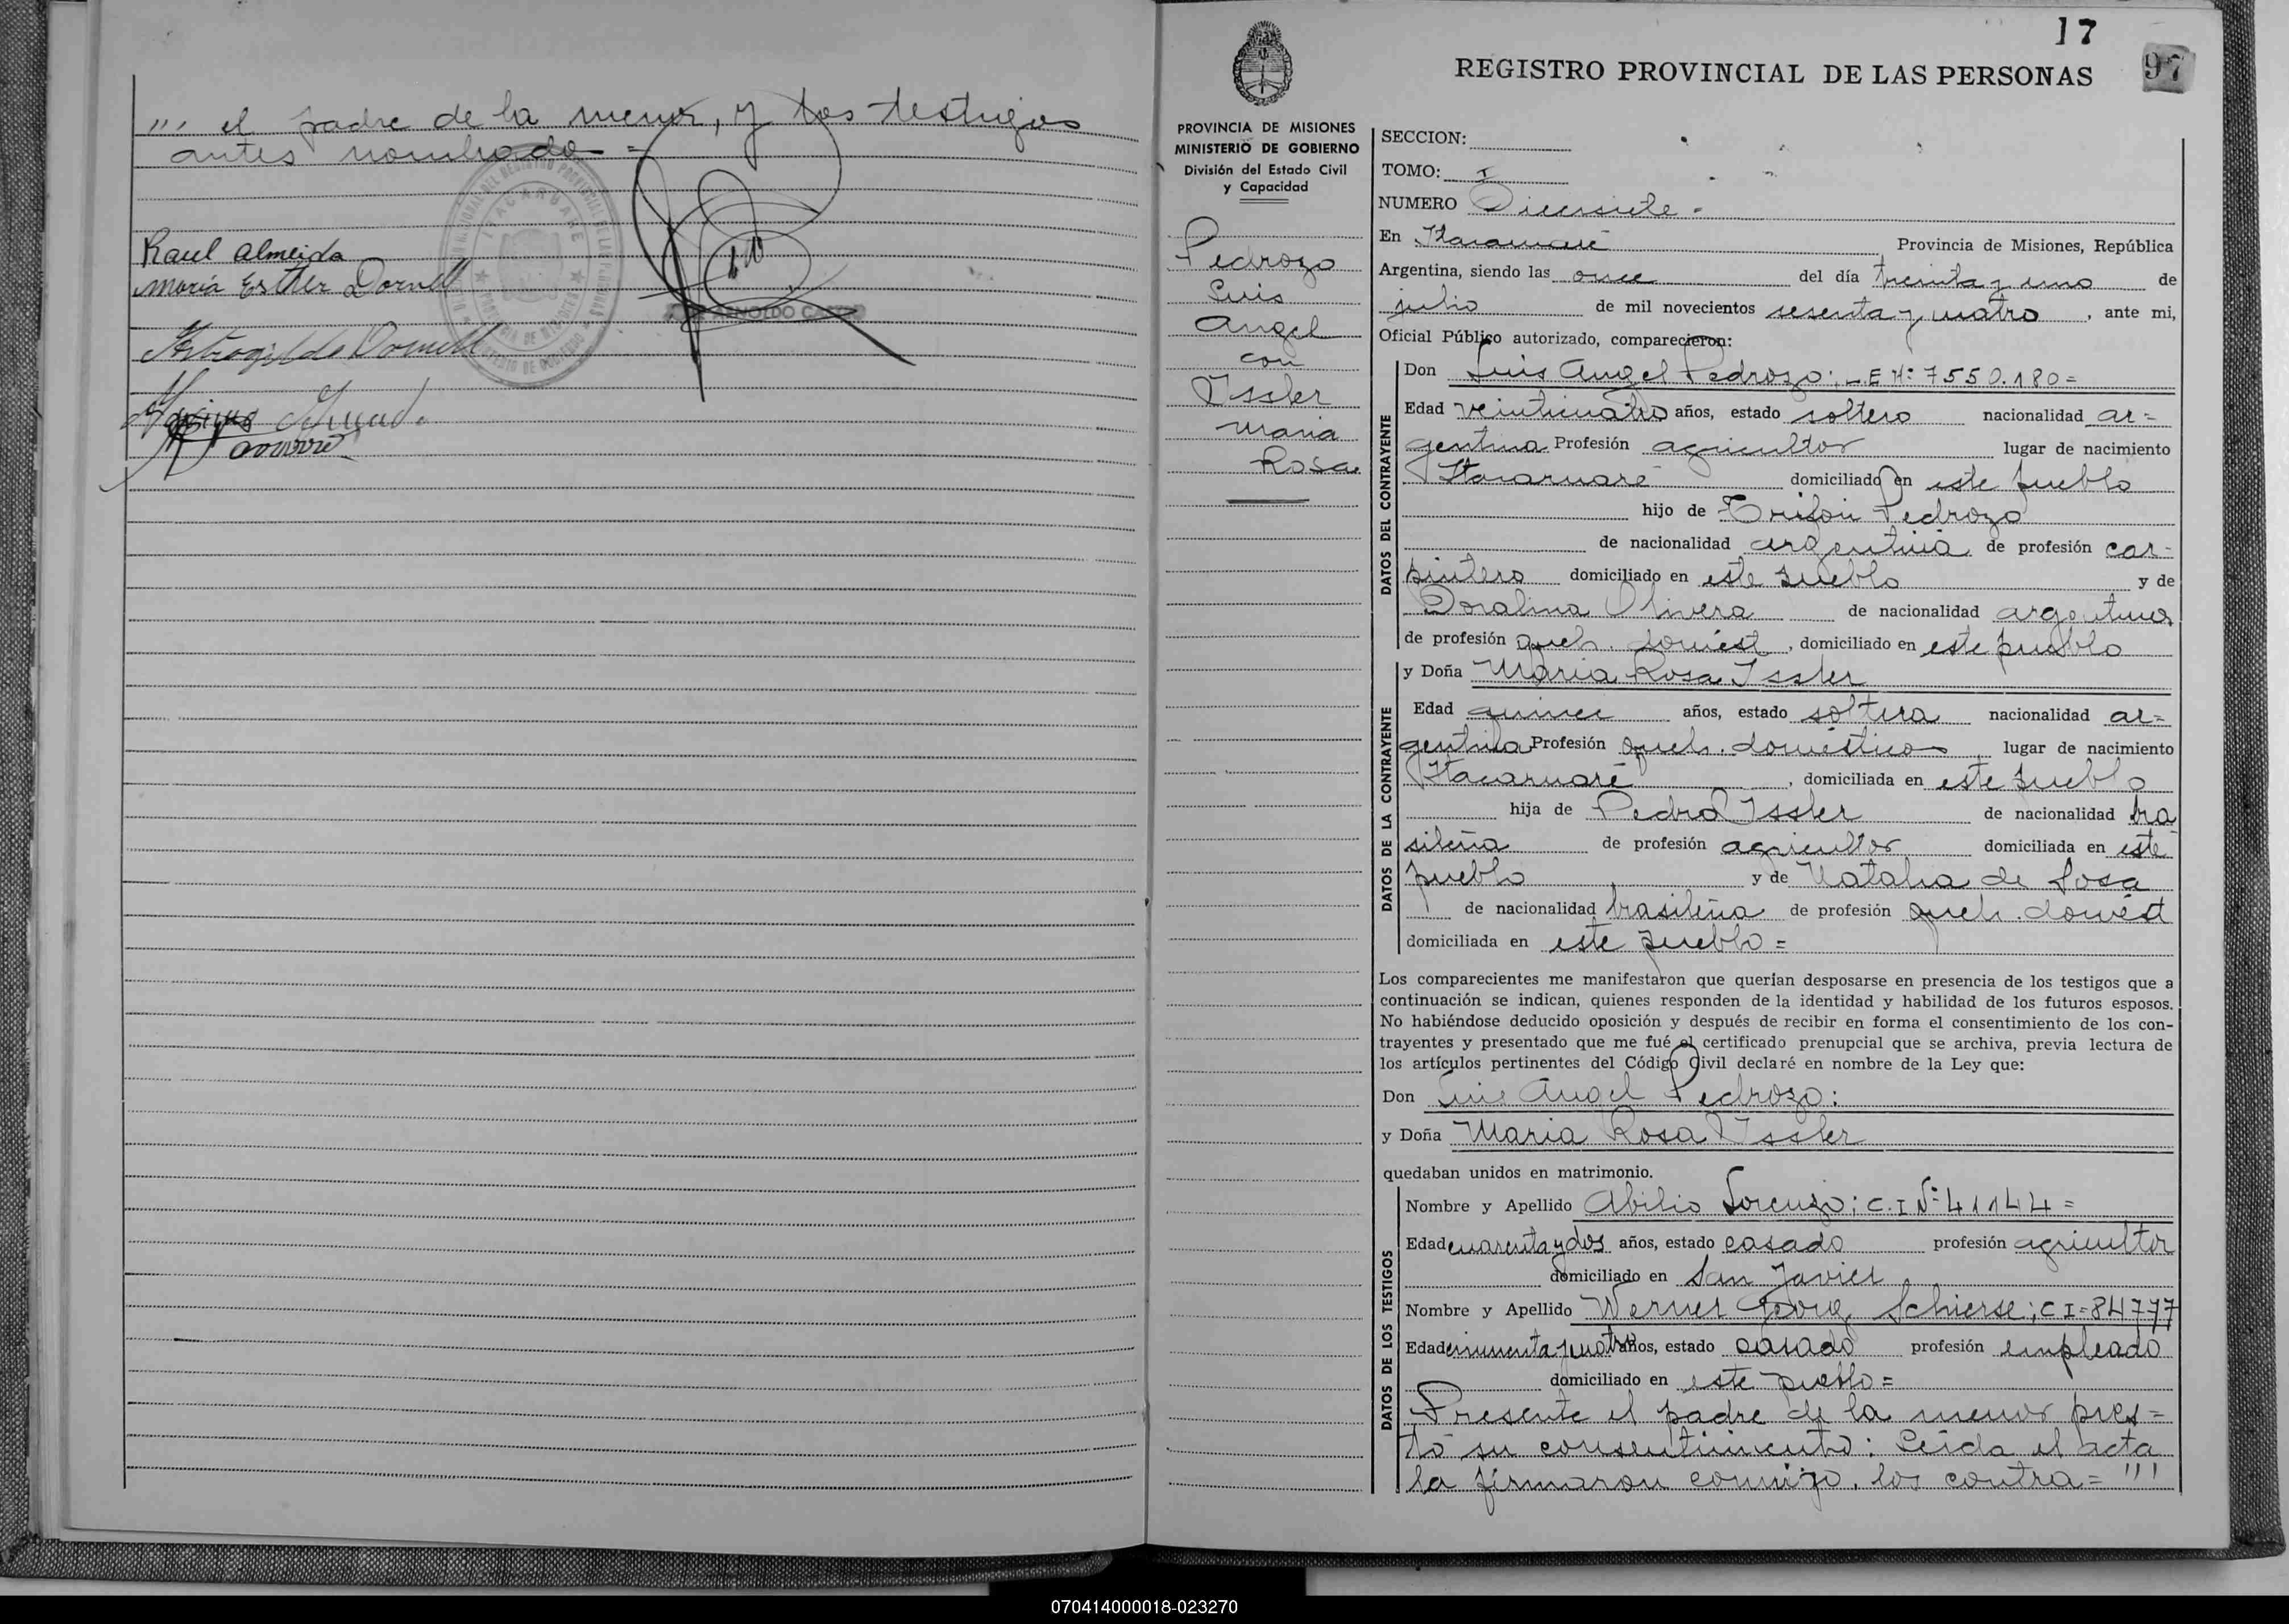 ''' el padre de la menor, y los testigos
antes nombrado =
ITACARUARE
PROVINCIA DE MISIONES
ARNOLDO
Raul Almeida
María Esther Dornell
Astrogildo Dornell
17
97
REGISTRO PROVINCIAL DE LAS PERSONAS
PROVINCIA DE MISIONES
MINISTERIO DE GOBIERNO
División del Estado Civil
y Capacidad
Pedrozo
Luis
Angel
con
Issler
Maria
Rosa
SECCION:
TOMO: I
NUMERO Diecisiete.=
En Itacaruaré Provincia de Misiones, República
Argentina, siendo las once del día treinta y uno de
julio de mil novecientos sesenta y cuatro, ante mi,
Oficial Público autorizado, comparecieron:
DATOS DEL CONTRAYENTE
Don Luis Angel Pedrozo: L.E Nº 7550.180=
Edad veinticuatro años, estado soltero nacionalidad ar=
gentina Profesión agricultor lugar de nacimiento
Itacaruaré domiciliado en este pueblo
hijo de Trifon Pedrozo
de nacionalidad argentina de profesión car=
pintero domiciliado en este pueblo y de
Doralina Olivera de nacionalidad argentina
de profesión queh. domést, domiciliado en este pueblo
DATOS DE LA CONTRAYENTE
y Doña Maria Rosa Issler
Edad quince años, estado soltera nacionalidad ar=
gentina Profesión queh. domésticos lugar de nacimiento
Itacaruaré, domiciliada en este pueblo
hija de Pedro Issler de nacionalidad bra
sileña de profesión agricultor domiciliada en este
pueblo y de Natalia de Sosa
de nacionalidad brasileña de profesión queh. domést
domiciliada en este pueblo =
Los comparecientes me manifestaron que querían desposarse en presencia de los testigos que a
continuación se indican, quienes responden de la identidad y habilidad de los futuros esposos.
No habiéndose deducido oposición y después de recibir en forma el consentimiento de los con-
trayentes y presentado que me fué el certificado prenupcial que se archiva, previa lectura de
los artículos pertinentes del Código Civil declaré en nombre de la Ley que:
Don Luis Angel Pedrozo:
y Doña Maria Rosa Issler
quedaban unidos en matrimonio.
DATOS DE LOS TESTIGOS
Nombre y Apellido Abilio Lorenzo; C.I Nº 41144 =
Edad cuarenta y dos años, estado casado profesión agricultor
domiciliado en San Javier
Nombre y Apellido Werner Georg Schierse; C I=84777
Edad cincuenta y cuatro años, estado casado profesión empleado
domiciliado en este pueblo =
Presente el padre de la menor pres=
tó su consentimiento: Leída el acta
la firmaron conmigo, los contra= '''
070414000018-023270